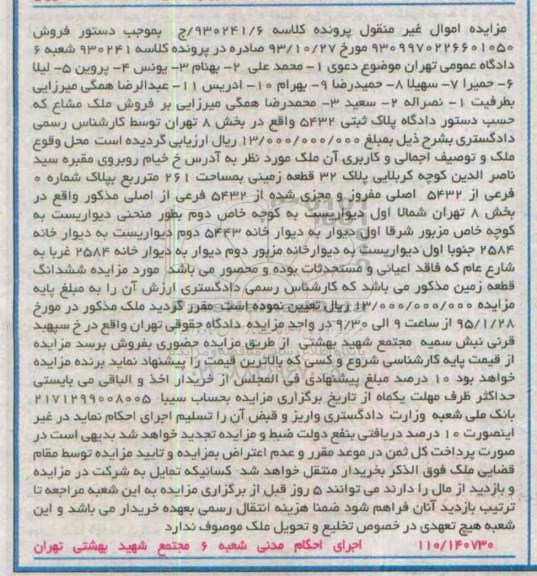 مزایده اموال غیر منقول پرونده کلاسه ۹۳۰۲۴۱/۶/ج بموجب دستور فروش
۹۳۰۹۹۷۰۲۲۶۶۰۱۰۵۰ مورخ ۹۳/۱۰/۲۷ صادره در پرونده کلاسه ۹۳۰۲۴۱ شعبه ۶
دادگاه عمومی تهران موضوع دعوی ۱- محمد علی ۲- بهنام ۳- یونس ۴- پروین ۵- لیلا
۶- حمیرا ۷- سهیلا ۸- حمیدرضا ۹- بهرام ۱۰- ادریس ۱۱- عبدالرضا همگی میرزایی
بطرفیت ۱- نصراله ۲- سعید ۳- محمدرضا همگی میرزایی بر فروش ملک مشاع که
حسب دستور دادگاه پلاک ثبتی ۵۴۳۲ واقع در بخش ۸ تهران توسط کارشناس رسمی
دادگستری بشرح ذیل بمبلغ ۱۳/۰۰۰/۰۰۰/۰۰۰ ریال ارزیابی گردیده است محل وقوع
ملک و توصیف اجمالی و کاربری آن ملک مورد نظر به آدرس خ خیام روبروی مقبره سید
ناصر الدین کوچه کربلایی پلاک ۳۲ قطعه زمینی بمساحت ۲۶۱ متر‌ربع بپلاک شماره ۰
فرعی از ۵۴۳۲ اصلی مفروز و مجزی شده از ۵۴۳۲ فرعی از اصلی مذکور واقع در
بخش ۸ تهران شمالا اول دیواریست به کوچه خاص دوم بطور منحنی دیواریست به
کوچه خاص مزبور شرقا اول دیوار به دیوار خانه ۵۴۴۳ دوم دیواریست به دیوار خانه
۲۵۸۴ جنوبا اول دیواریست به دیوارخانه مزبور دوم دیوار به دیوار خانه ۲۵۸۴ غربا به
شارع عام که فاقد اعیانی و مستحدثات بوده و محصور می باشد مورد مزایده ششدانگ
قطعه زمین مذکور می باشد که کارشناس رسمی دادگستری ارزش آن را به مبلغ پایه
مزایده ۱۳/۰۰۰/۰۰۰/۰۰۰ ریال تعیین نموده است مقرر گردید ملک مذکور در مورخ
۹۵/۱/۲۸ از ساعت ۹ الی ۹/۳۰ در واحد مزایده دادگاه حقوقی تهران واقع در خ سپهبد
قرنی نبش سمیه مجتمع شهید بهشتی از طریق مزایده حضوری بفروش برسد مزایده
از قیمت پایه کارشناسی شروع و کسی که بالاترین قیمت را پیشنهاد نماید برنده مزایده
خواهد بود ۱۰ درصد مبلغ پیشنهادی فی المجلس از خریدار اخذ و الباقی می بایستی
حداکثر ظرف مهلت یکماه از تاریخ برگزاری مزایده بحساب سیبا ۲۱۷۱۲۹۹۰۰۸۰۰۵
بانک ملی شعبه وزارت دادگستری واریز و قبض آن را تسلیم اجرای احکام نماید در غیر
اینصورت ۱۰ درصد دریافتی بنفع دولت ضبط و مزایده تجدید خواهد شد بدیهی است در
صورت پرداخت کل ثمن در موعد مقرر و عدم اعتراض بمزایده و تایید مزایده توسط مقام
قضایی ملک فوق الذکر بخریدار منتقل خواهد شد کسانیکه تمایل به شرکت در مزایده
و بازدید از مال را دارند می توانند ۵ روز قبل از برگزاری مزایده به این شعبه مراجعه تا
ترتیب بازدید آنان فراهم شود ضمنا هزینه انتقال رسمی بعهده خریدار می باشد و این
شعبه هیچ تعهدی در خصوص تخلیع و تحویل ملک موصوف ندارد
۱۱۰/۱۴۰۷۳۰ اجرای احکام مدنی شعبه ۶ مجتمع شهید بهشتی تهران